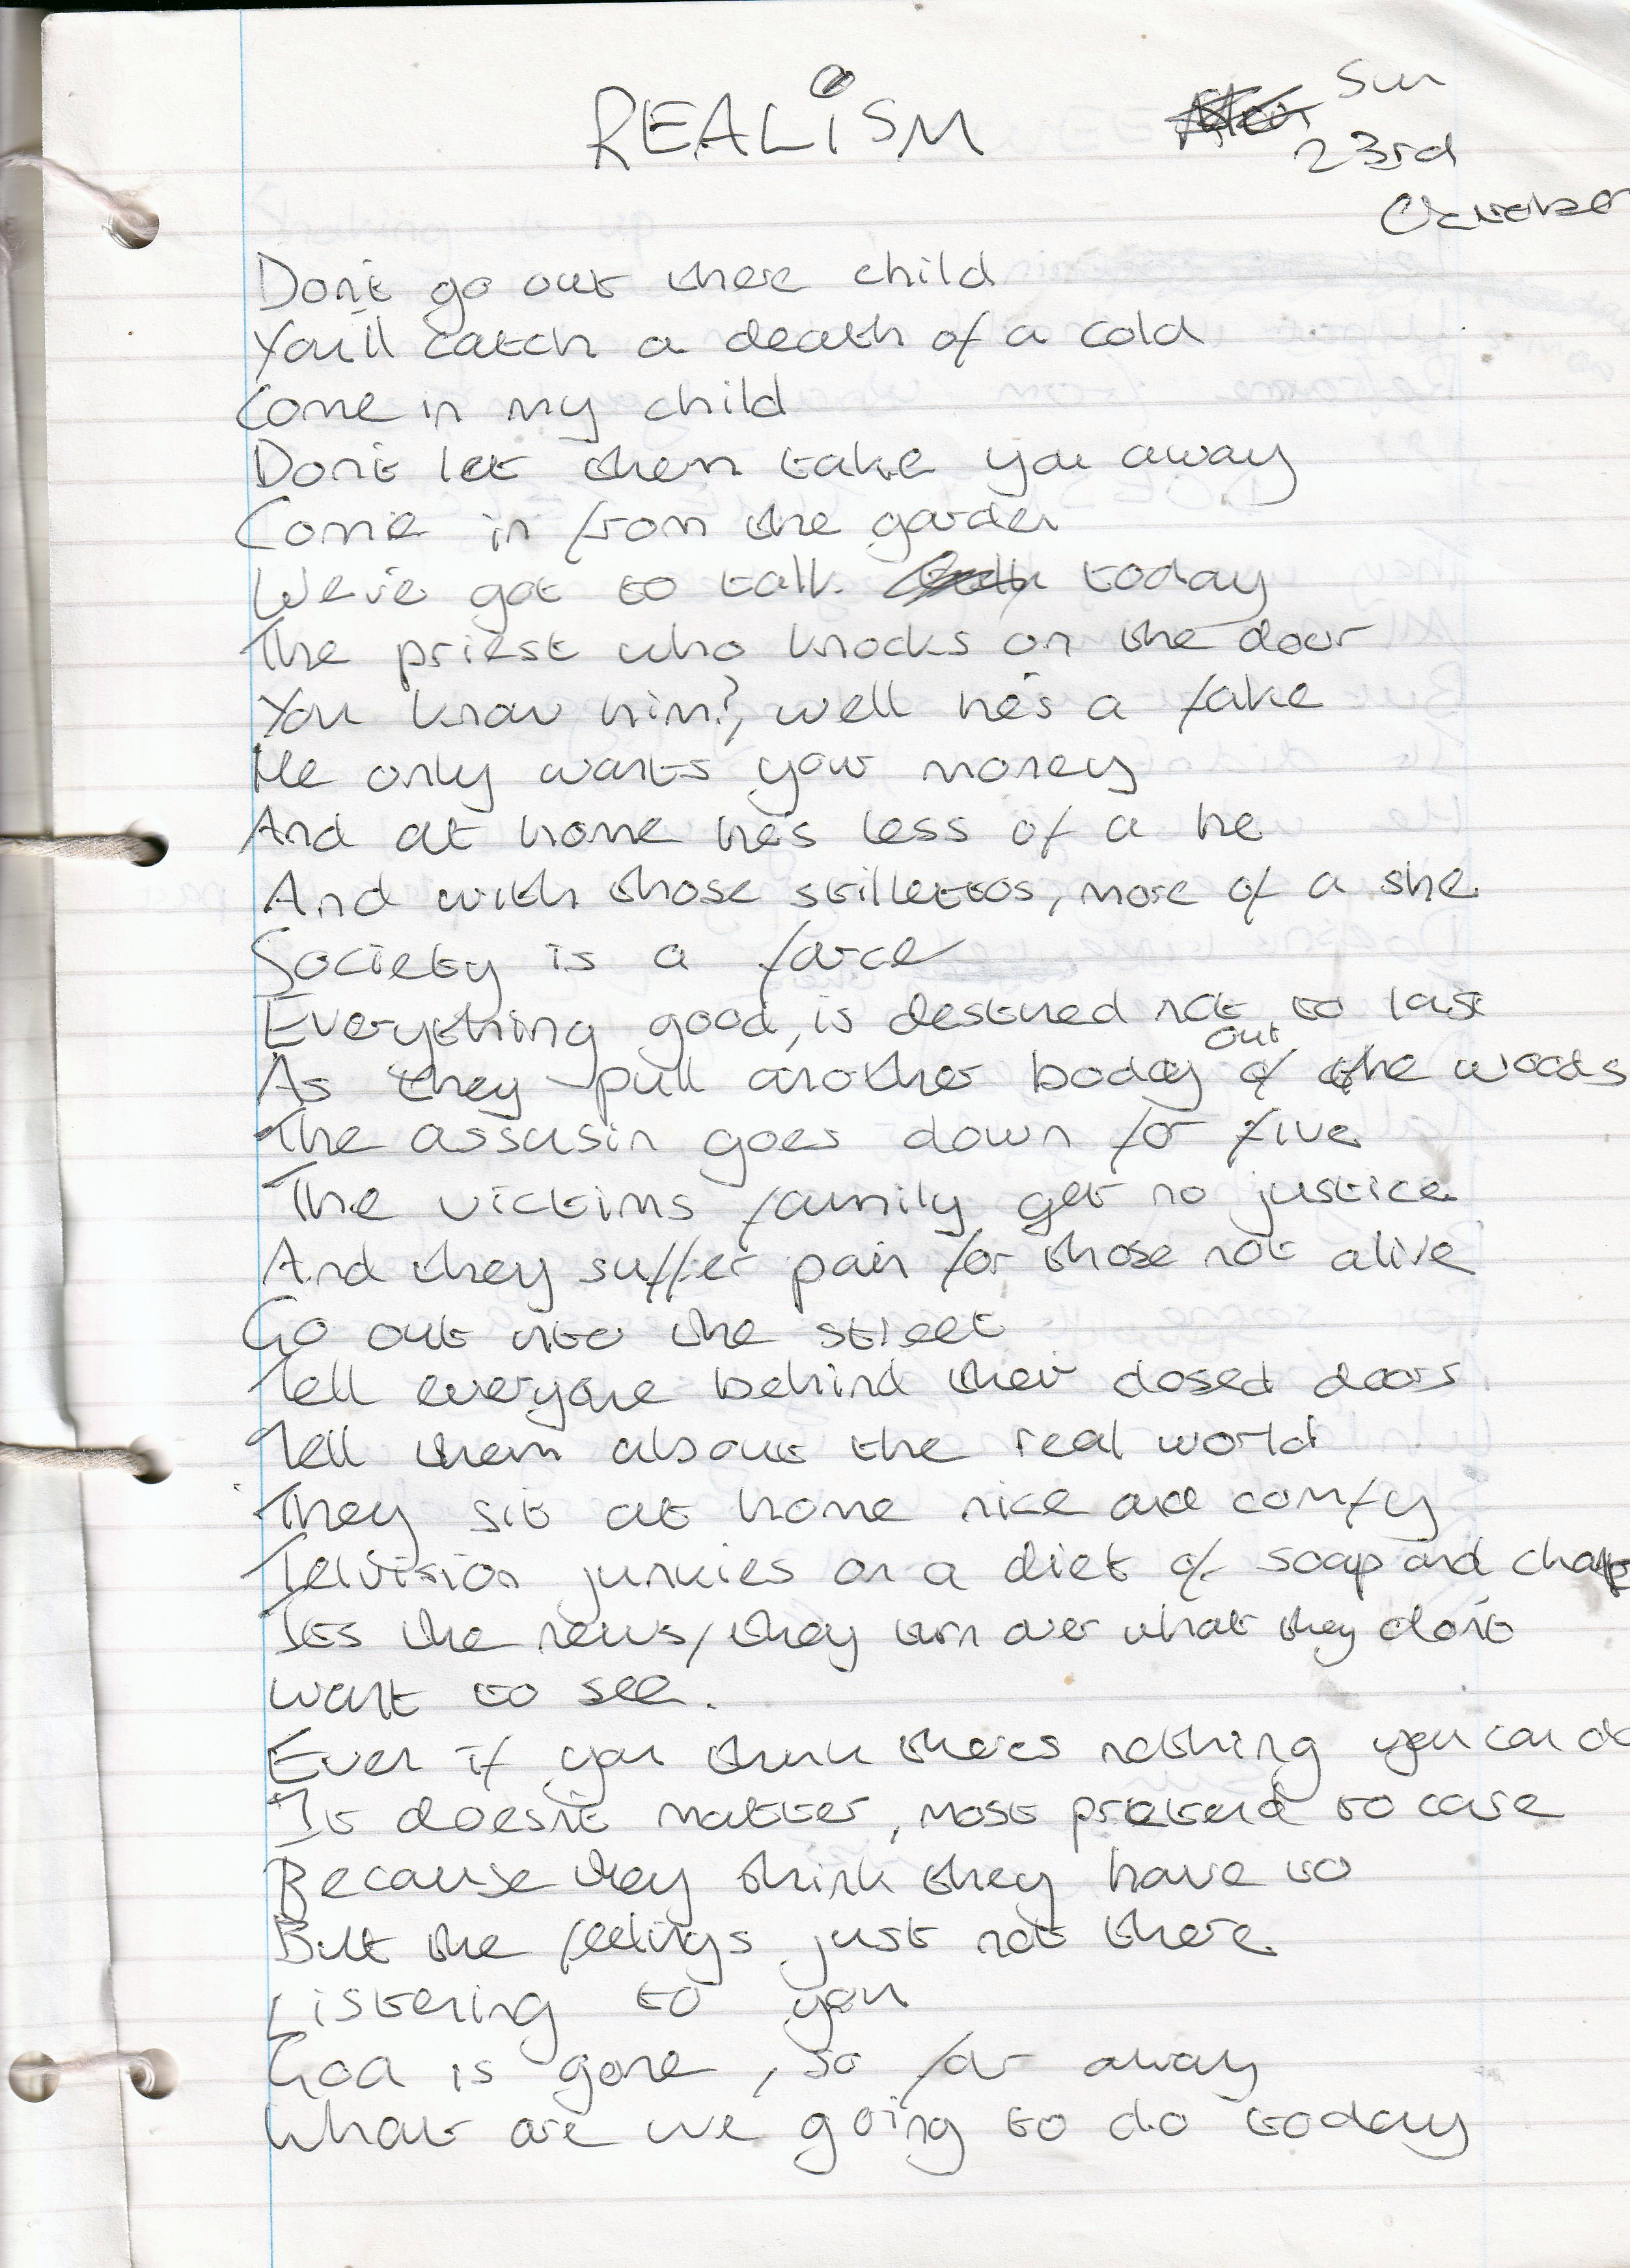 REALiSM
Sun
23rd
October
Don't go out there child
You'll catch a death of a cold
Come in my child
Don't let them take you away
Come in from the garden
We've got to talk today
The priest who knocks on the door
You know him?, well he's a fake
He only wants your money
And at home he's less of a he
And with those stillettos, more of a she
Society is a farce
Everything good, is destined not to last
As they pull another body out of the woods
The assasin goes down for five
The victims family get no justice
And they suffer pain for those not alive
Go out into the street
Tell everyone behind their closed doors
Tell them about the real world
They sit at home nice and comfy
Telvision junkies on a diet of soap and
It's the news, they turn over what they don't
want to see.
Even if you think there's nothing you can do
It doesn't matter, most pretend to care
Because they think they have to
But the feelings just not there
Listening to you
God is gone, so far away
What are we going to do today